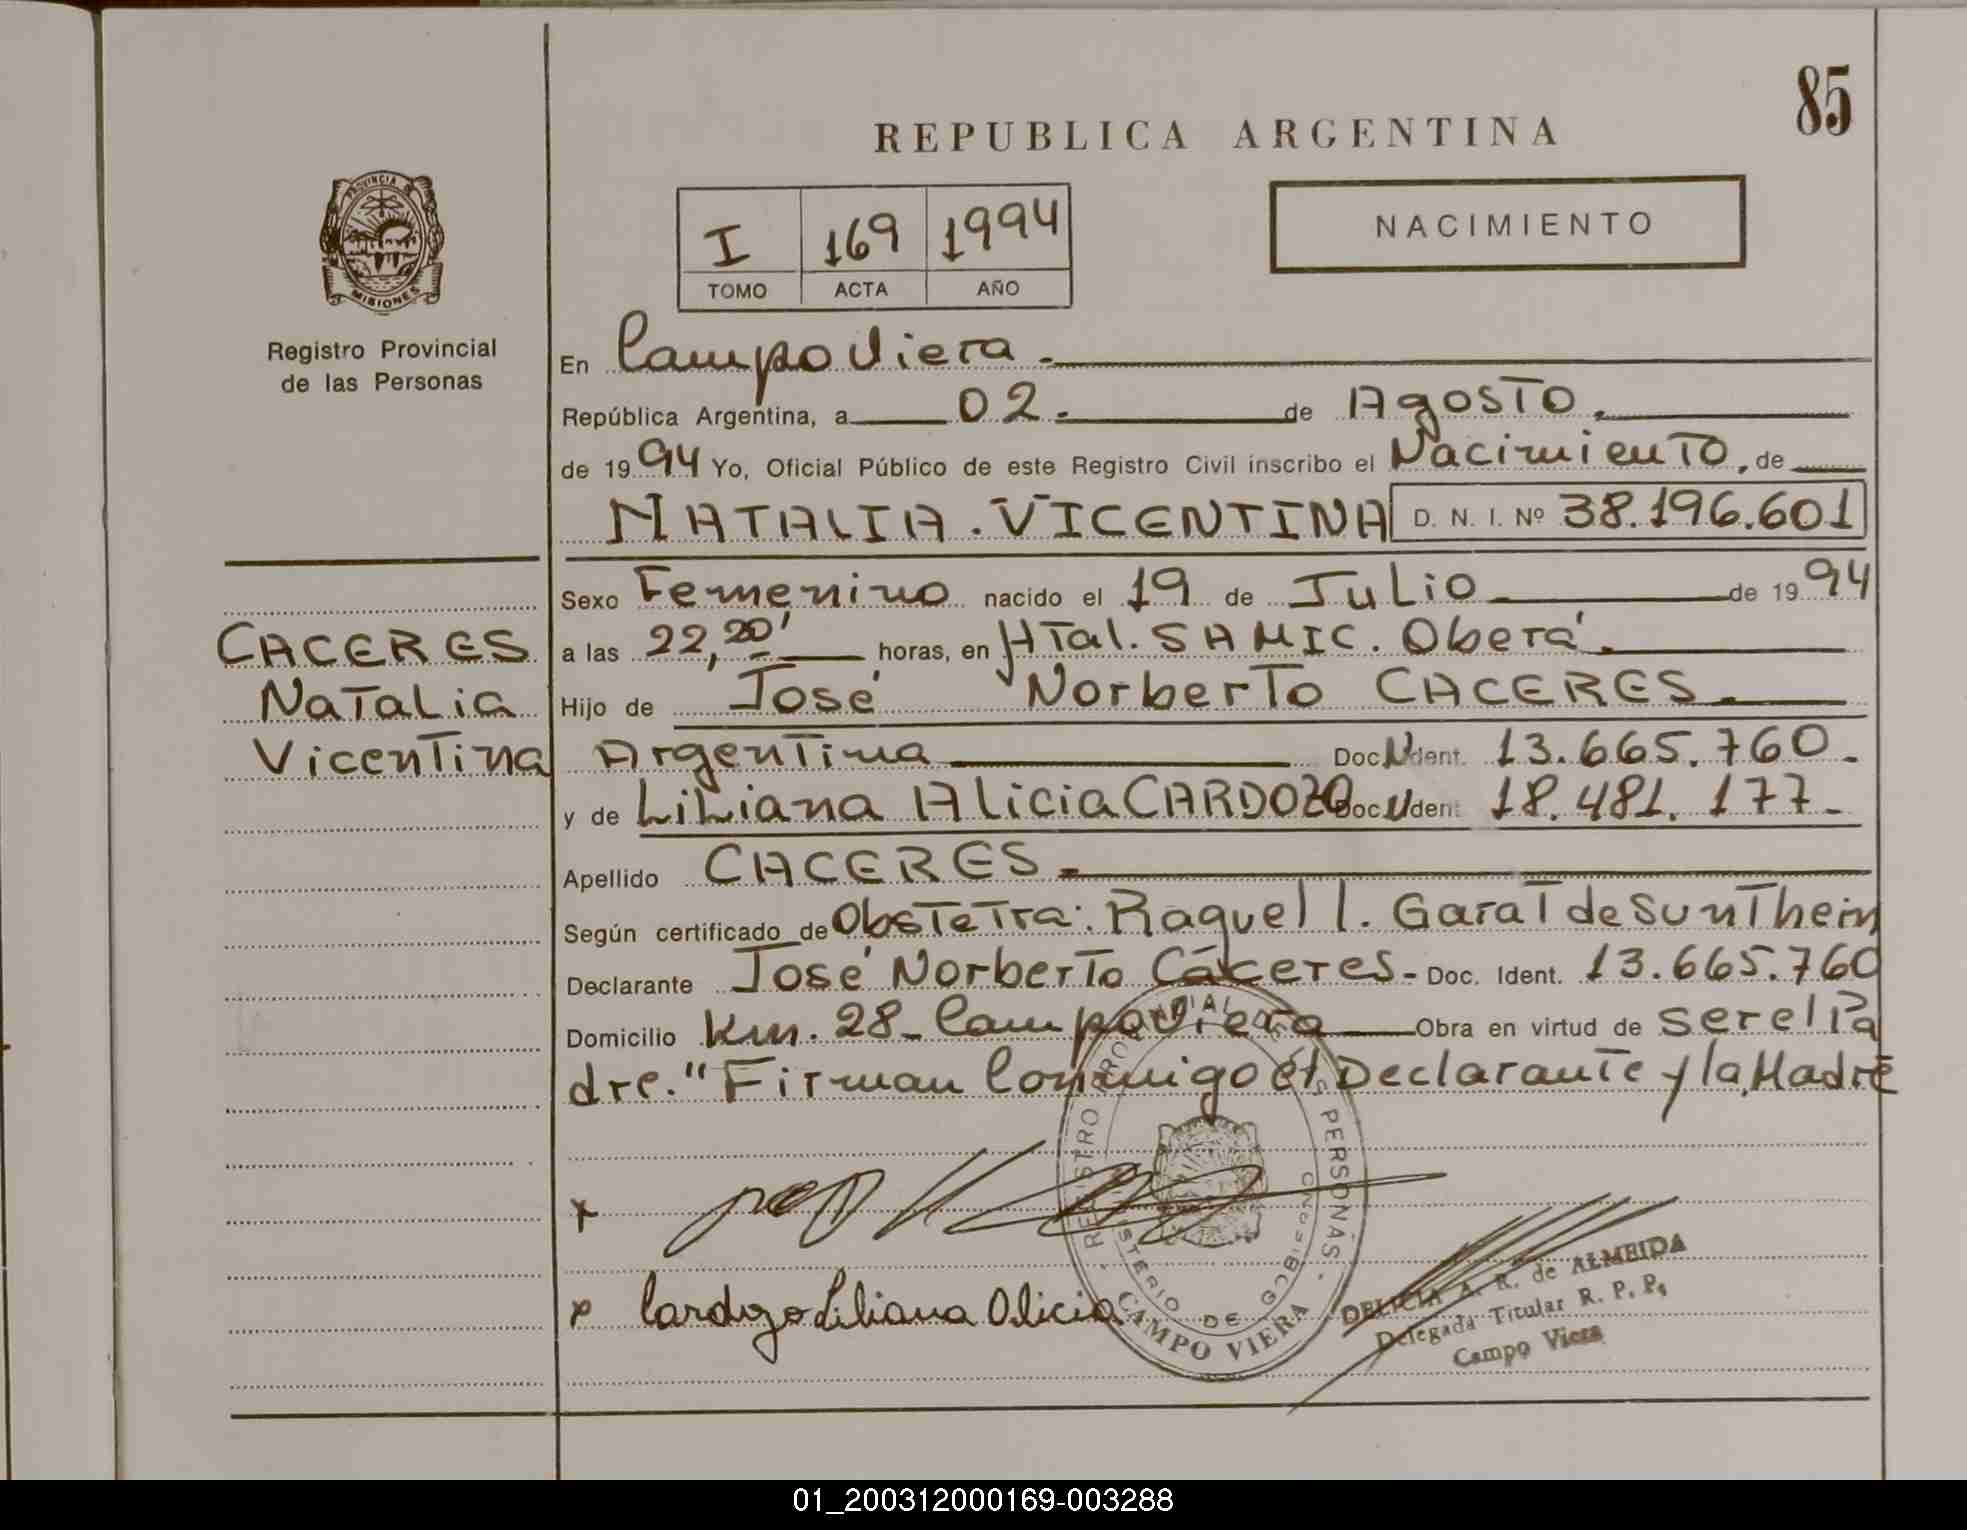 85
REPUBLICA ARGENTINA
PROVINCIA DE
MISIONES
Registro Provincial
de las Personas
I 169 1994
TOMO ACTA AÑO
NACIMIENTO
En Campo Viera.
República Argentina, a 02. de Agosto.
de 1994 Yo, Oficial Público de este Registro Civil inscribo el Nacimiento, de
NATALIA. VICENTINA D. N. I. Nº 38.196.601
Sexo Femenino nacido el 19 de Julio de 1994
CACERES
Natalia
Vicentina
a las 22,20' horas, en HTal. SAMIC. Oberá.
Hijo de José Norberto CACERES.
Argentina Doc. Ident. 13.665.760.
y de Liliana Alicia CARDOZO Doc. Ident. 18.481.177-
Apellido CACERES.
Según certificado de Obstetra: Raquel I. Garat de Sunthein
Declarante José Norberto Cáceres- Doc. Ident. 13.665.760
Domicilio Km. 28- Campo Viera Obra en virtud de ser el Pa
dre." Firman Conmigo el Declarante y la Madre
REGISTRO PROVINCIAL DE LAS PERSONAS
MINISTERIO DE GOBIERNO
CAMPO VIERA
x
x Cardozo Liliana Alicia
DELICIA A. R. de ALMEIDA
Delegada Titular R. P. P.
Campo Viera
01_200312000169-003288